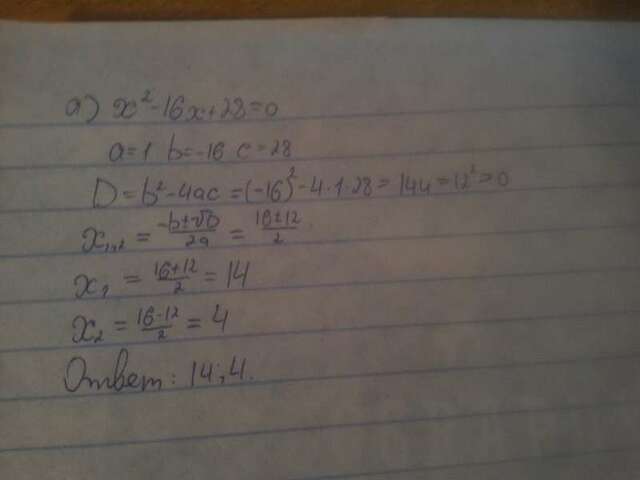 а) x²-16x+28=0
a=1 b=-16 c=28
D=b²-4ac=(-16)²-4·1·28=144=12²>0
x₁,₂ = -b±√D/2a = 16±12/2
x₁ = 16+12/2 = 14
x₂ = 16-12/2 = 4
Ответ: 14;4.